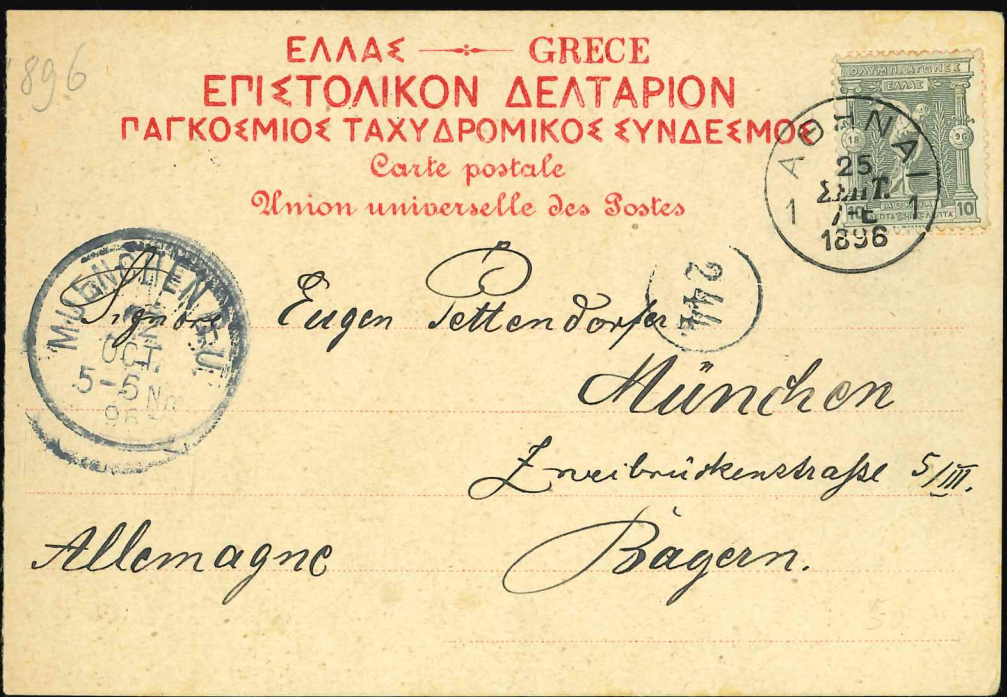 1896
ΕΛΛΑΣ GRECE
ΕΠΙΣΤΟΛΙΚΟΝ ΔΕΛΤΑΡΙΟΝ
ΠΑΓΚΟΣΜΙΟΣ ΤΑΧΥΔΡΟΜΙΚΟΣ ΣΥΝΔΕΣΜΟΣ
Carte postale
Union universelle des Postes
ΟΛΥΜΠ. ΑΓΩΝΕΣ
ΕΛΛΑΣ
18 96
10 10
ΑΘΗΝΑΙ
25
ΣΕΠΤ.
1 1
1896
244
MUENCHEN
OCT.
5-6 Nm
96
Signore Eugen Pettendorfer
München
Zweibrückenstraße 5/III.
Allemagne Bayern.
50